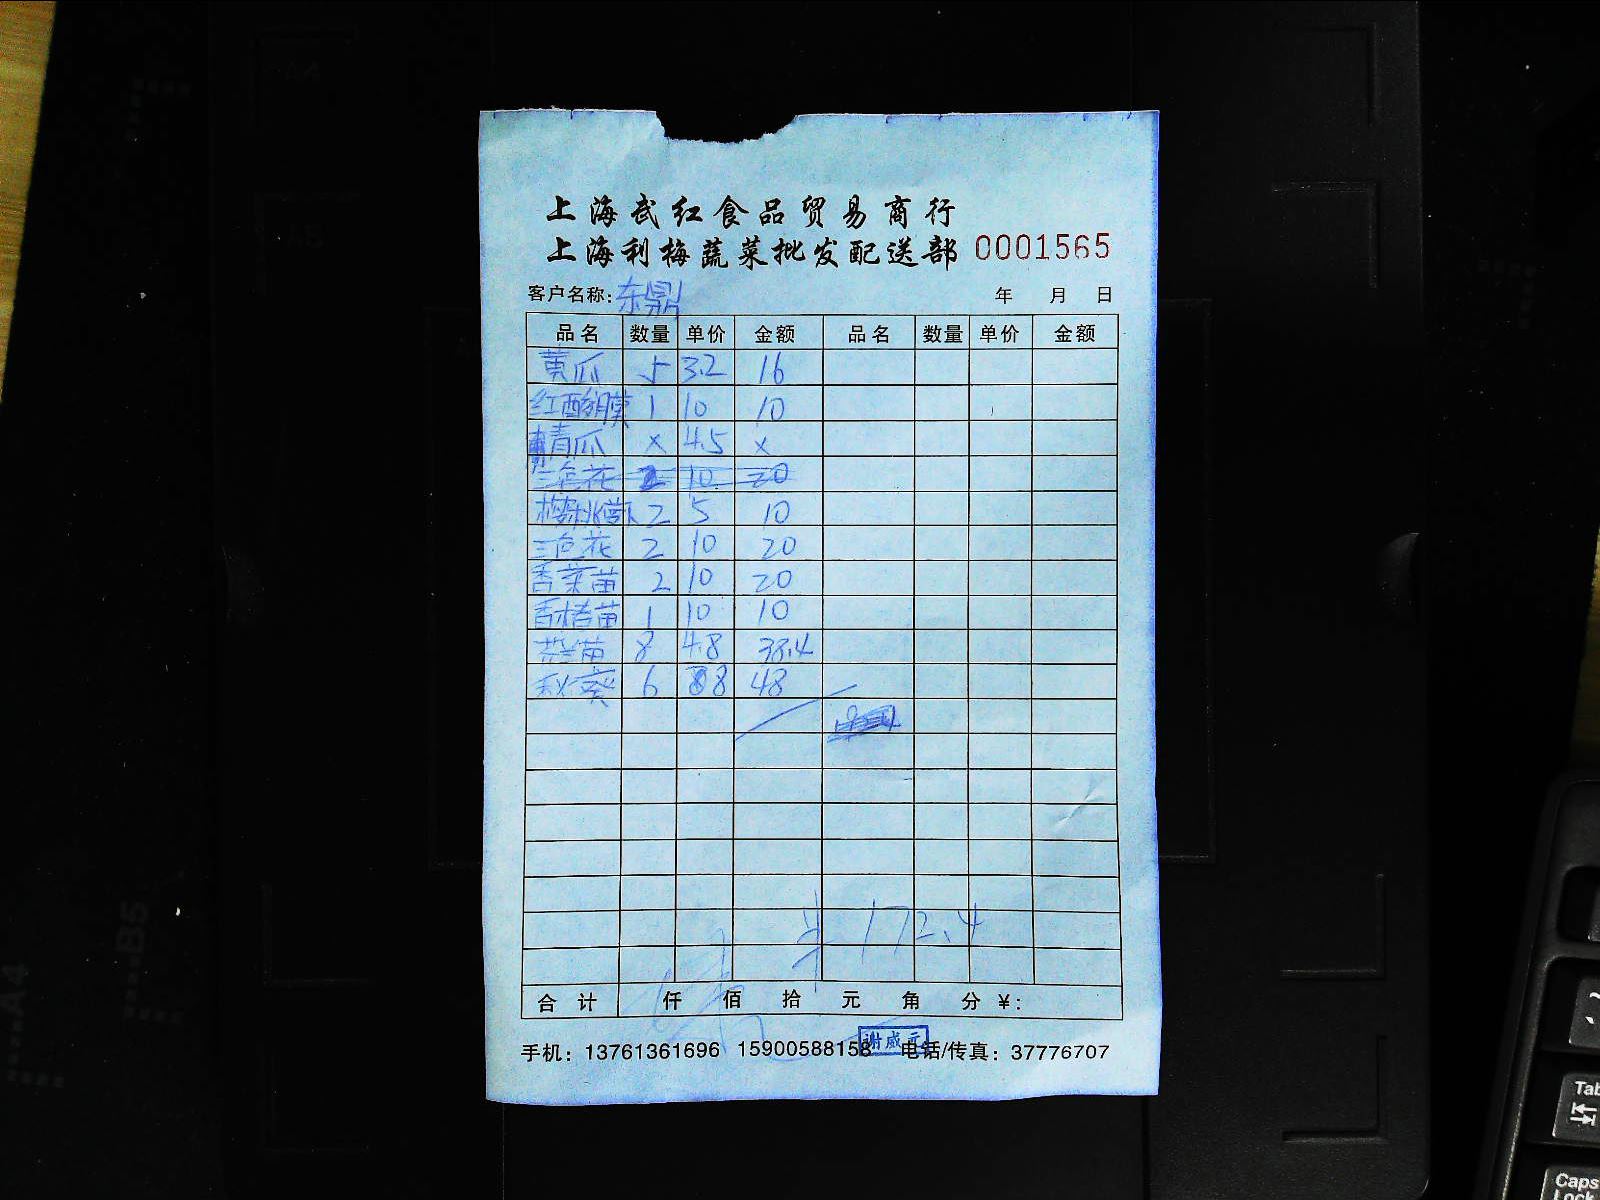 上海武红食品贸易商行
上海利梅蔬菜批发配送部 0001565
客户名称: 东鼎 年 月 日
品名 数量 单价 金额 品名 数量 单价 金额
黄瓜 5 3.2 16
红西 1 10 10
青瓜 x 4.5 x
三色花 2 10 20
樱桃萝卜 2 5 10
三色花 2 10 20
香菜苗 2 10 20
香椿苗 1 10 10
苗 8 4.8 38.4
秋葵 6 8 48
单 172.4
合计 仟 佰 拾 元 角 分 ¥:
谢威元
手机: 13761361696 15900588158 电话/传真: 37776707
A4
B5
Tab
Caps Lock